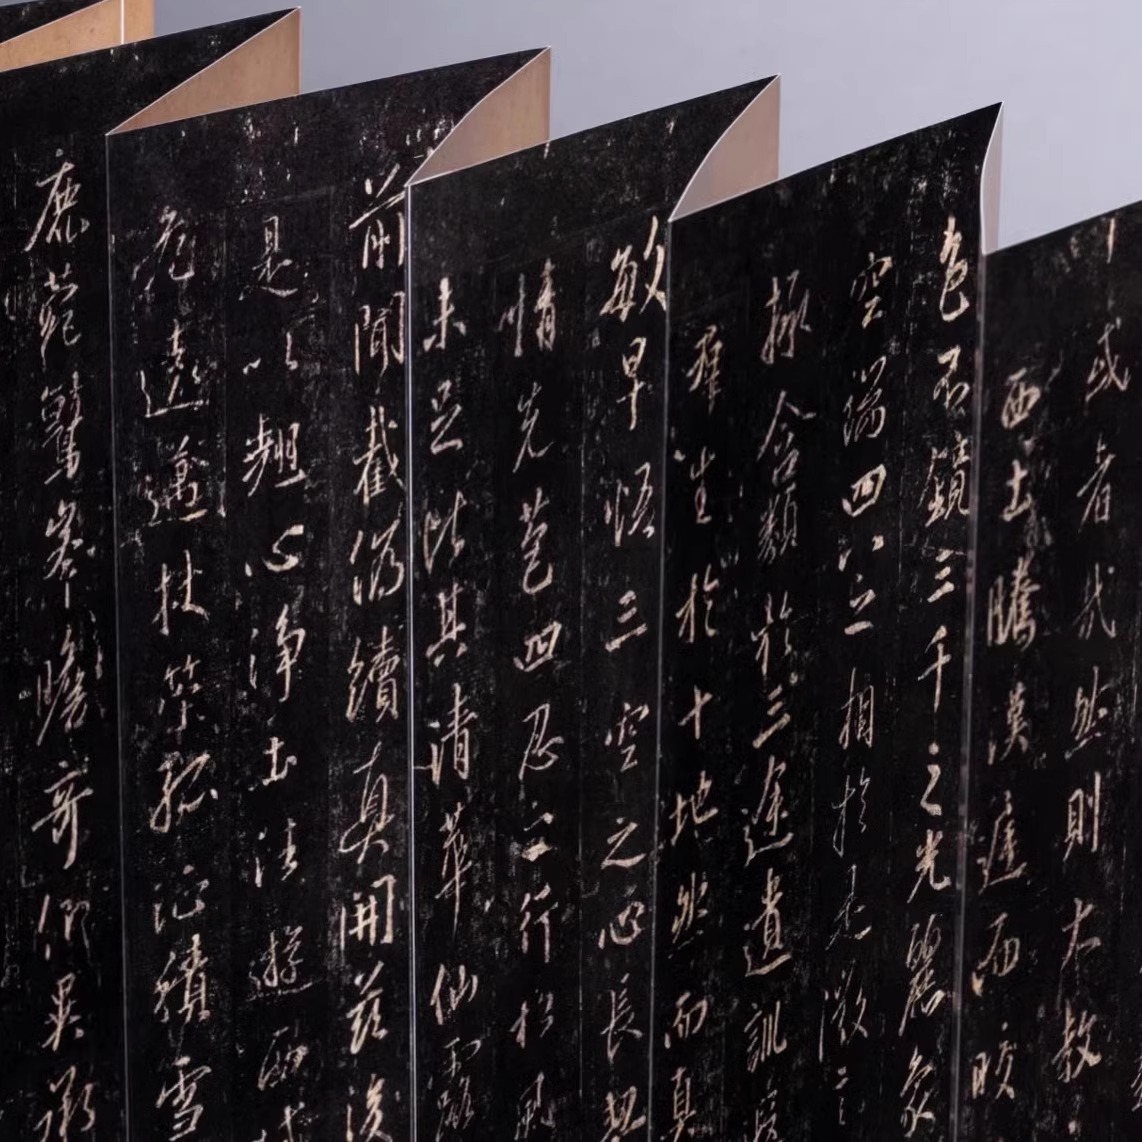 或者哉然則大教
西土騰漢庭而皎
色不鏡三千之光麗象
空端四八之相於是微言
拯含類於三途遺訓遐
群生於十地然而真
敏早悟三空之心長契
情先苞四忍之行松風
未足比其清華仙露
前聞截偽續真開茲後
是以翹心淨土法遊西域
危遠邁杖策孤征積雪
鹿菀鷲峯瞻奇仰異承